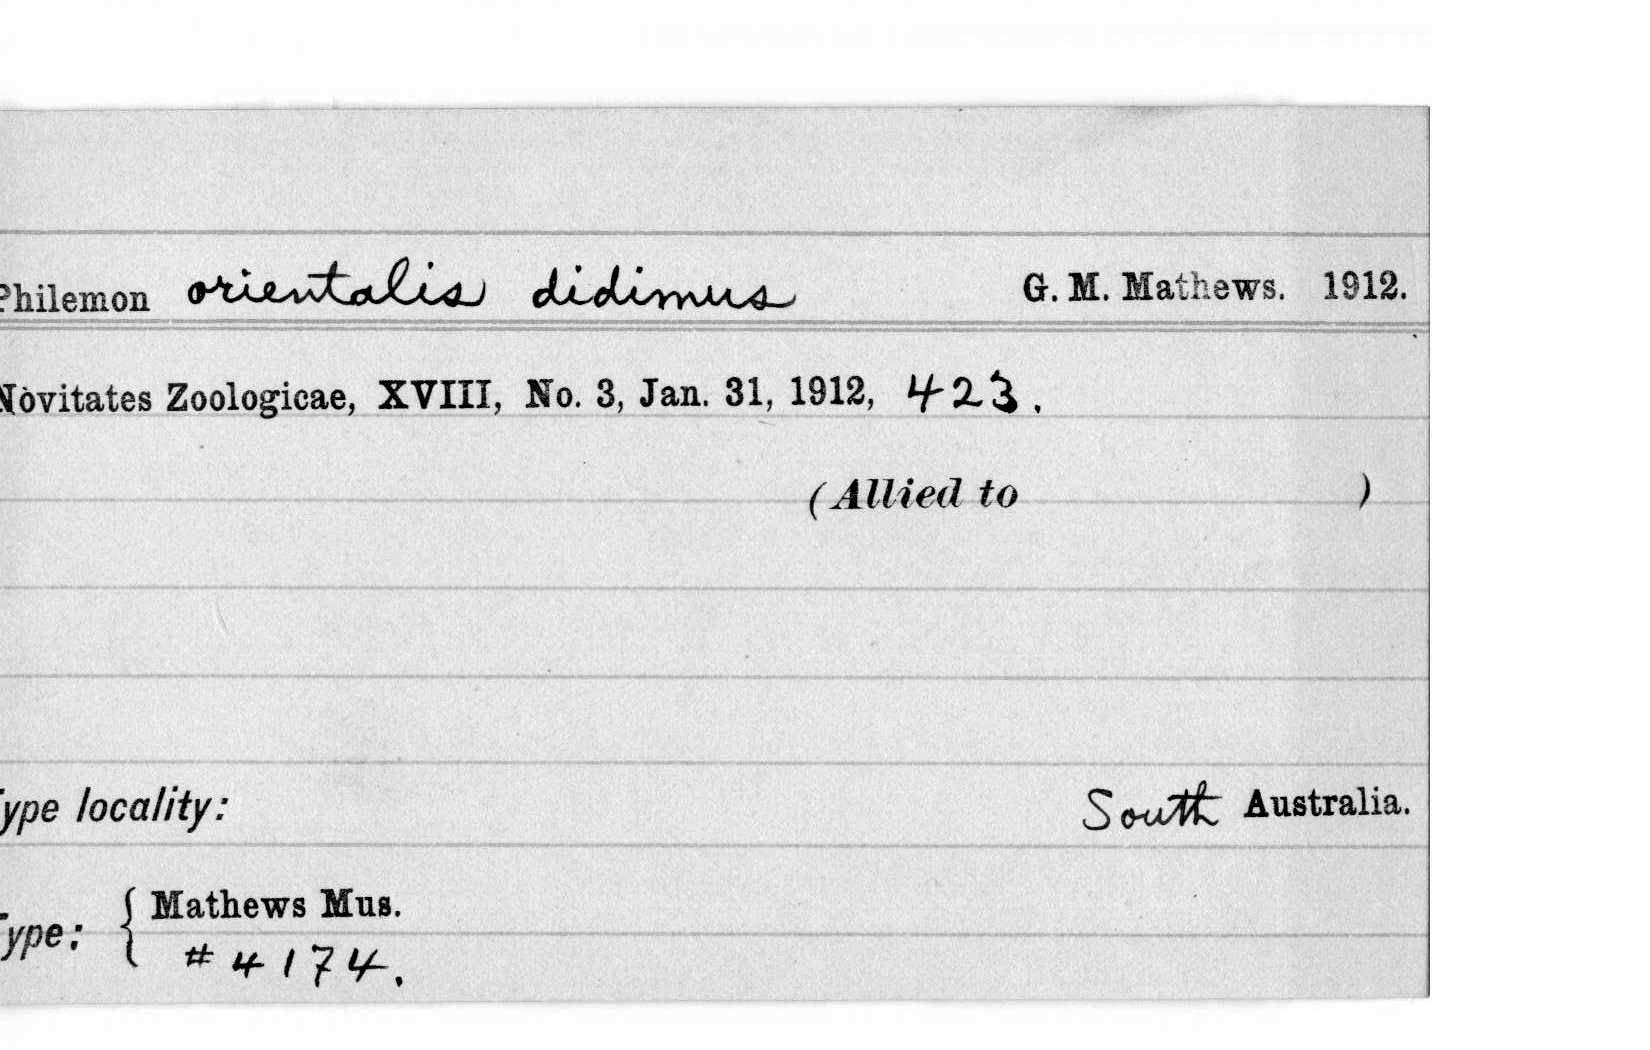 Philemon orientalis didimus G. M. Mathews. 1912.
Novitates Zoologicae, XVIII, No. 3, Jan. 31, 1912, 423.
(Allied to )
Type locality: South Australia.
Type: { Mathews Mus.
# 4174.